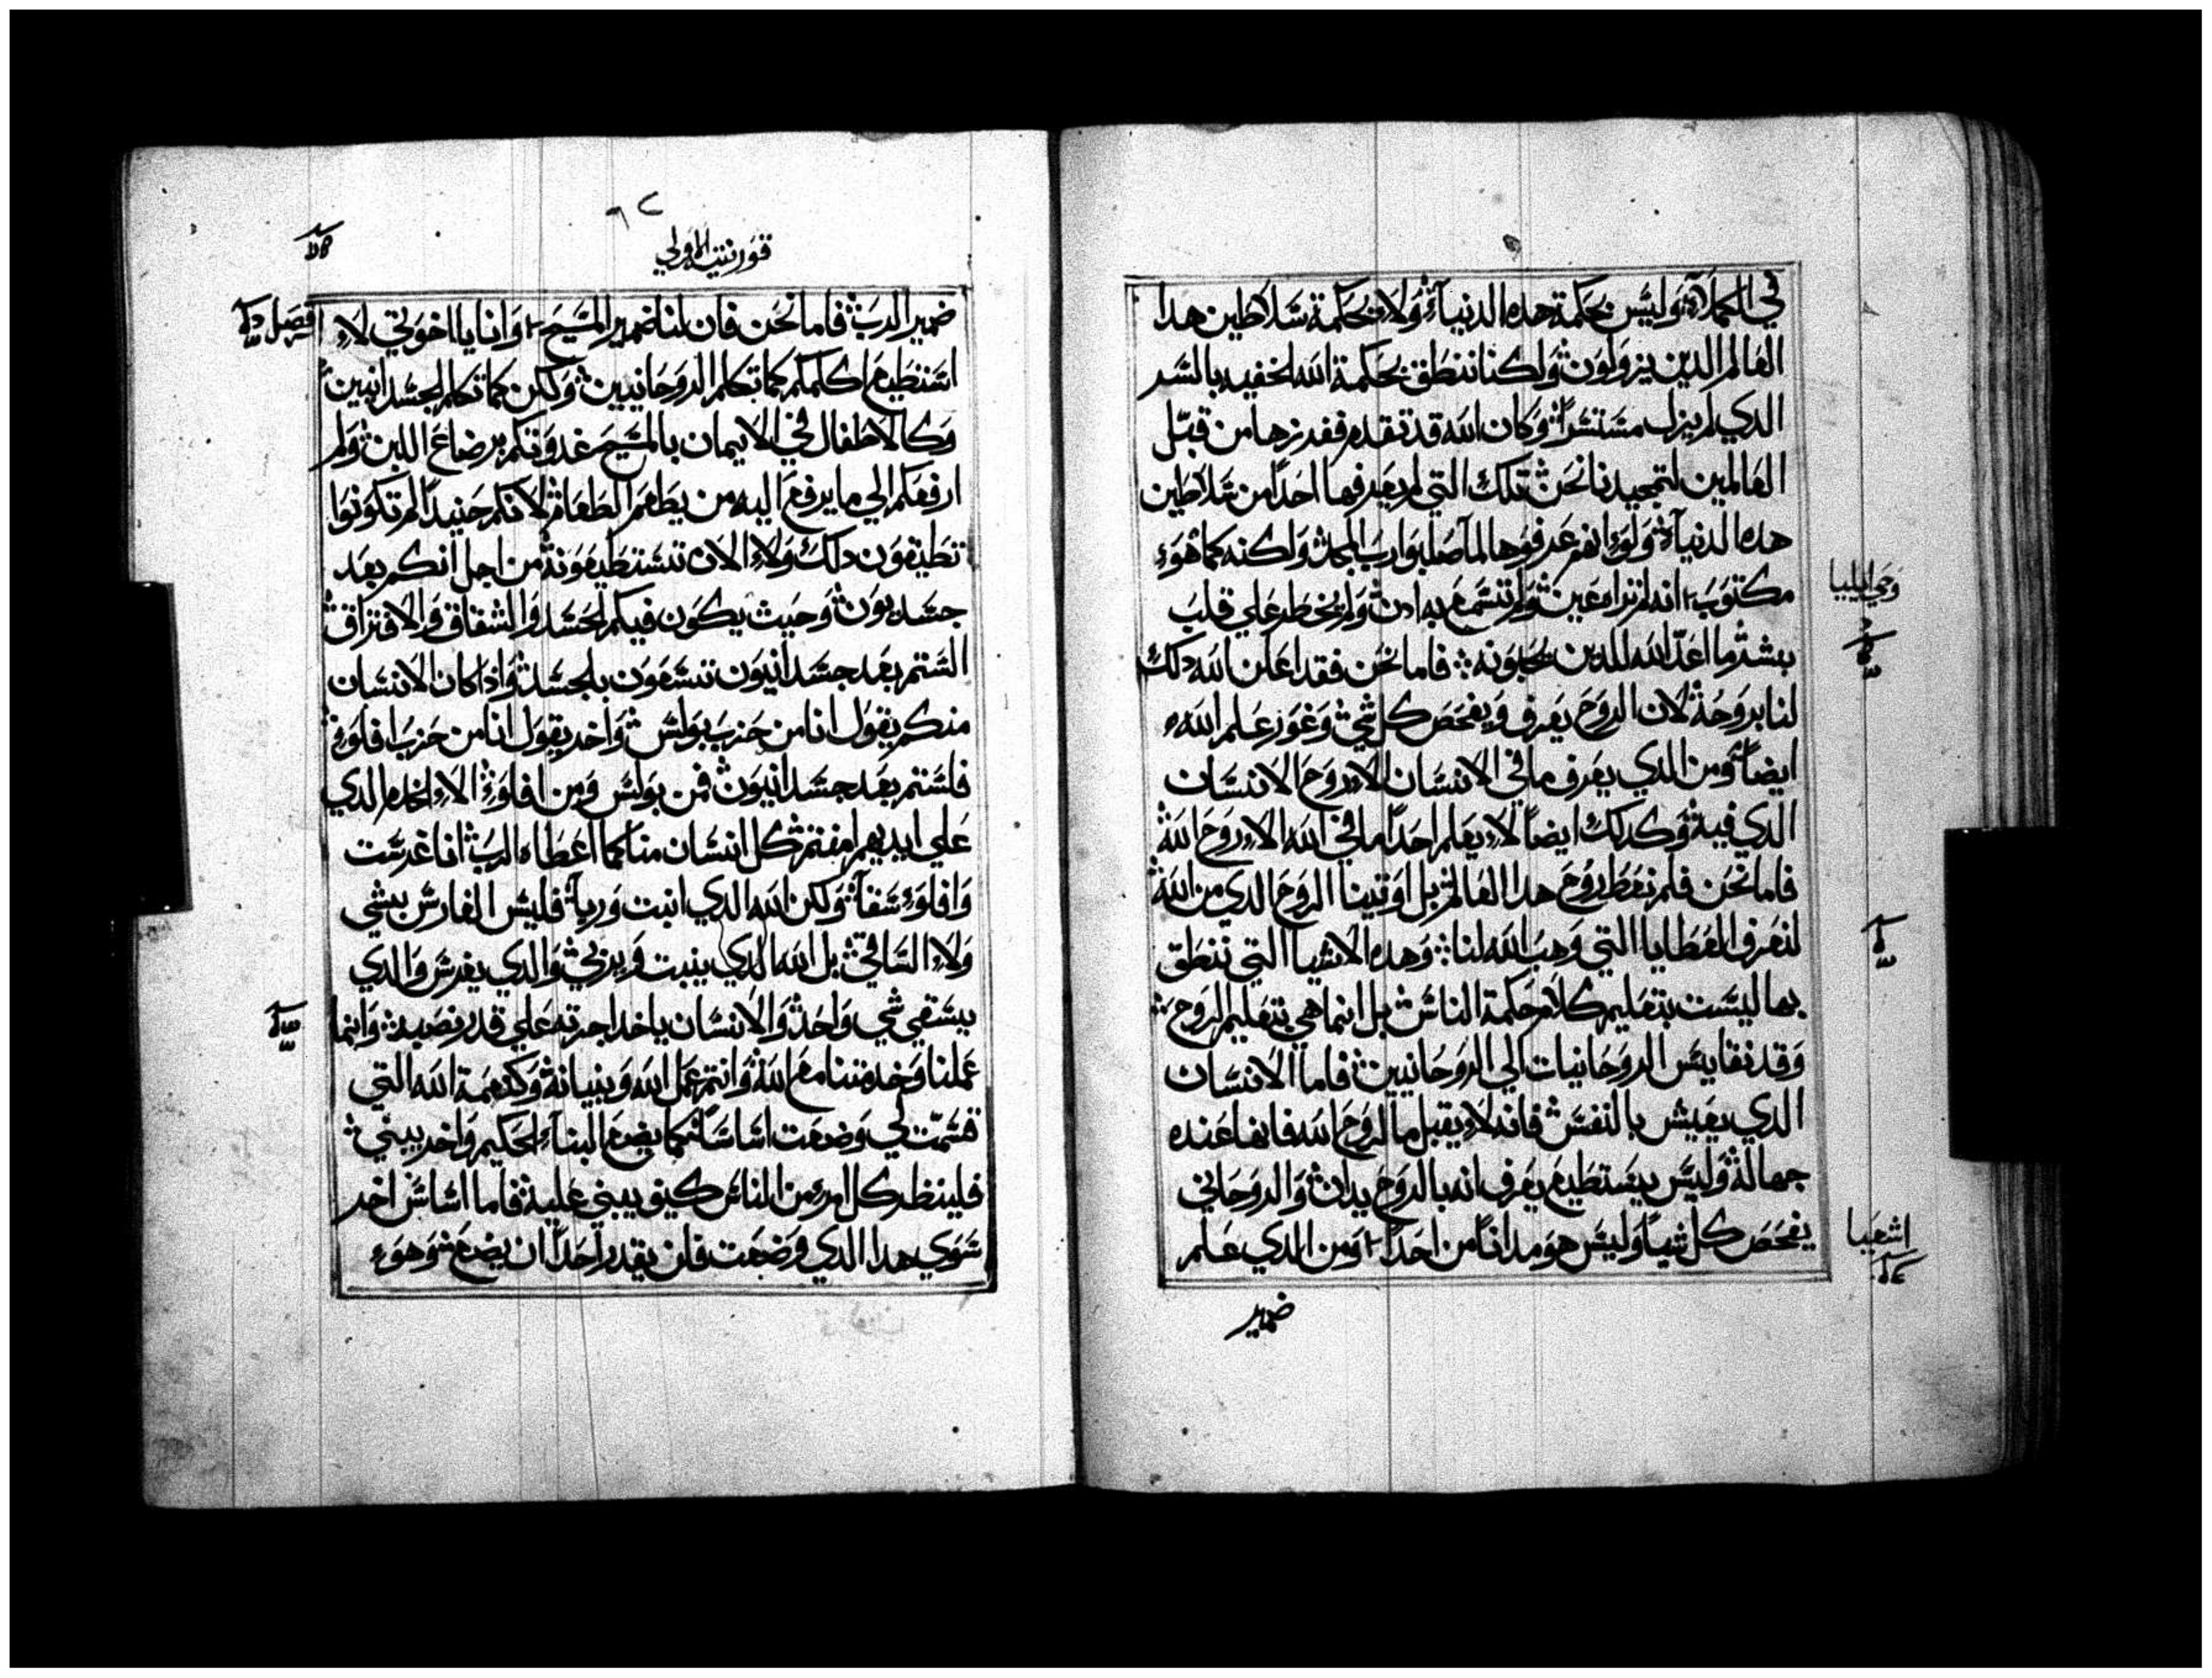 في الكملآء وليس بحكمة هده الدنيآء ولاء بحكمة سلاطين هدا
العالم الدين يزولون ولكننا ننطق بحكمة الله الخفيه بالسر
الدي لم يزل مستترا وكان الله قد تقدم ففرزها من قبل
العالمين لتمجيدنا نحن تلك التي لم يعرفها احدا من سلاطين
هده الدنيآء ولوء انهم عرفوها لما صلبوا رب المجد ولكنه كما هوء
مكتوب انه لم تراه عين ولم تسمع به ادن ولم يخطر علي قلب
بشر ما اعد الله للدين يحبونه فاما نحن فقد اعلن الله دلك
لنا بروحه لان الروح يعرف ويفحص كل شي وغور علم الله
ايضا ومن الدي يعرف ما في الانسان الاء روح الانسان
الدي فيه وكدلك ايضا لاء يعلم احدا ما في الله الاء روح الله
فاما نحن فلم نعط روح هدا العالم بل اوتينا الروح الدي من الله
لنعرف العطايا التي وهب الله لنا وهده الاشيا التي ننطق
بها ليست بتعليم كلام حكمة الناس بل انما هي بتعليم الروح
وقد نقايس الروحانيات الي الروحانيين فاما الانسان
الدي يعيش بالنفس فانه لاء يقبل ما لروح الله فانها عنده
جهاله وليس يستطيع يعرف انه بالروح يدان والروحاني
يفحص كل شيا وليس هو مدانا من احدا ومن الدي علم
ضمير
وحي ايليا
اشعيا
٦٢
قورنتيه الاولي
ضمير الرب فاما نحن فان لنا ضمير المسيح وانا يا اخوتي لاء
استطيع اكلمكم كما تكلم الروحانيين ولكن كما تكلم الجسدانيين
وكالاطفال في الايمان بالمسيح غدوتكم برضاع اللبن ولم
ارفعكم الي ما يرفع اليه من يطعم الطعام لانكم حنيدا لم تكونوا
تطيقون دلك ولاء الان تستطيعونه من اجل انكم بعد
جسديون وحيث يكون فيكم الحسد والشقاق والافتراق
الستم بعد جسدانيون تسعون بالجسد واذا كان الانسان
منكم يقول انا من حزب بولس واخر يقول انا من حزب افلوء
فلستم بعد جسدانيون فمن بولس ومن افلوء الاء الخدم الدي
علي ايديهم امنتم كل انسان منا كما اعطاه الرب انا غرست
وافلوء سقآ ولكن الله الدي انبت وربا فليس الغارس بشي
ولاء الساقي بل الله الدي ينبت ويربي والدي يغرس والدي
يسقي شي واحد والانسان ياخد اجرته علي قدر نصبه وانما
عملنا وخدمتنا مع الله وانتم عمل الله وبنيانه وكنعمة الله التي
قسمت لي وضعت اساسا كما يضع البنآء الحكيم واخر يبني
فلينظر كل امرء من الناس كيف يبني عليه فاما اساس اخر
سوي هدا الدي وضعت فلن يقدر احدا ان يضع وهوء
فصل